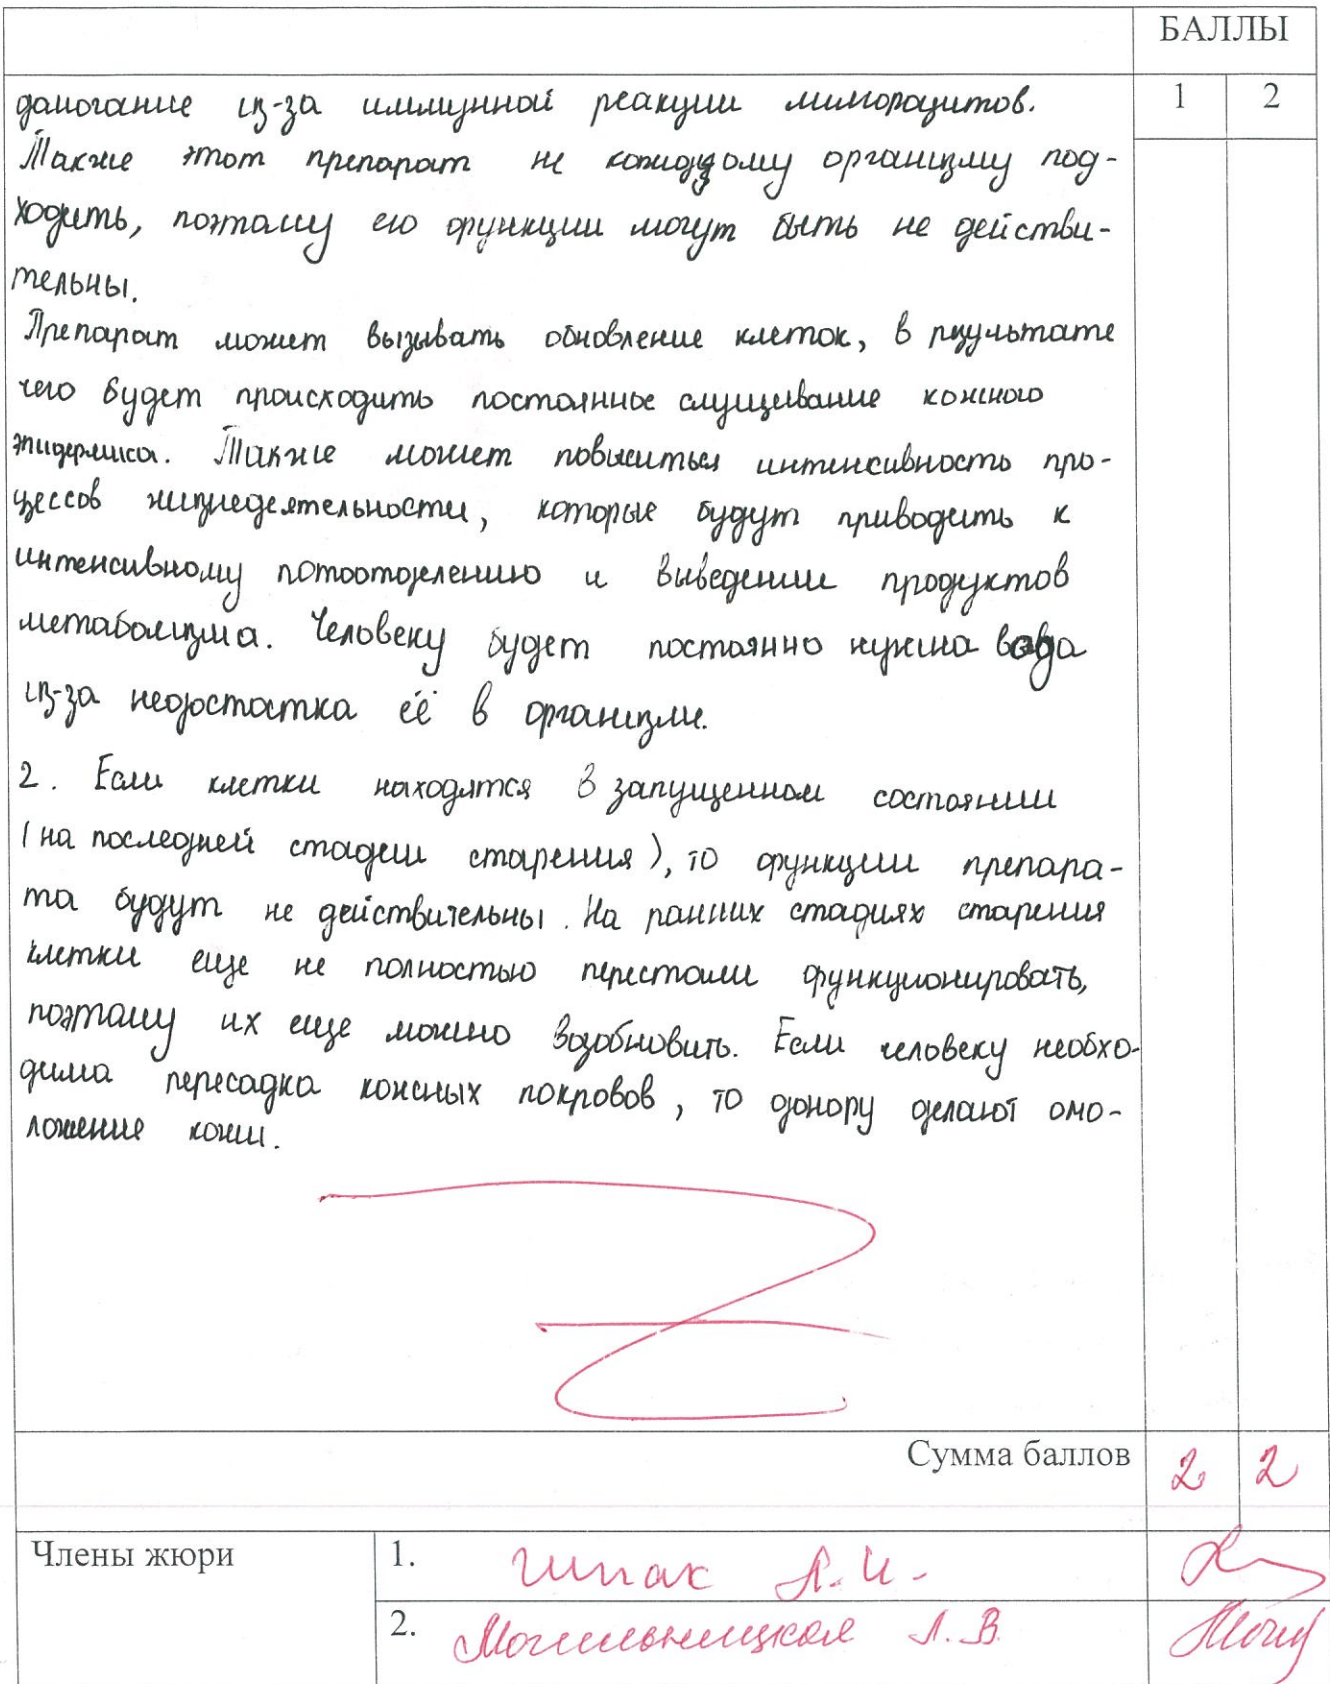 БАЛЛЫ
1 2
домогание из-за иммунной реакции лимфоцитов.
Также этот препарат не каждому организму под-
ходить, поэтому его функции могут быть не действи-
тельны.
Препарат может вызывать обновление клеток, в результате
чего будет происходить постоянное слущивание кожного
эпидермиса. Также может повыситься интенсивность про-
цессов жизнедеятельности, которые будут приводить к
интенсивному потоотделению и выведении продуктов
метаболизма. Человеку будет постоянно нужна вода
из-за недостатка её в организме.
2. Если клетки находятся в запущенном состоянии
(на последней стадии старения), то функции препара-
та будут не действительны. На ранних стадиях старения
клетки еще не полностью перестали функционировать,
поэтому их еще можно возобновить. Если человеку необхо-
дима пересадка кожных покровов, то донору делают омо-
ложение кожи.
Сумма баллов 2 2
Члены жюри 1. Шпак Л.И.
2. Могильницкая Л.В.